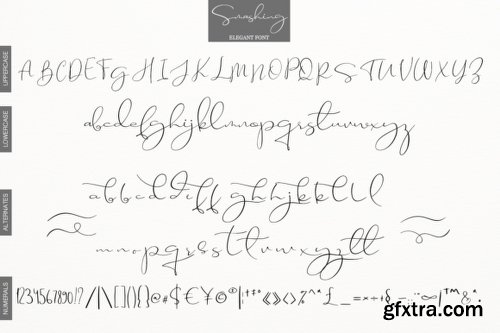 Smashing
ELEGANT FONT
UPPERCASE
ABCDEFGHIJKLMNOPQRSTUVWXYZ
LOWERCASE
abcdefghijklmnopqrstuvwxyz
ALTERNATES
abbddffghhjkkll
mnopqrsstuvwxyzztt
NUMERALS
1234567890!?/|\[](){}@#$€¥©®¦†‡°«»‹›%^ª£_=×+÷§–:¨∞¶|™^&.
gfxtra.com